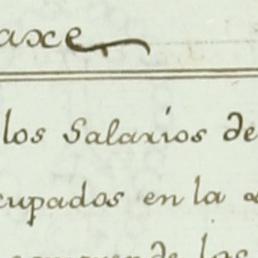 axce
los Salarios de
cupados en la
los